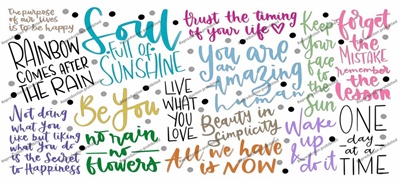 the purpose
of our lives
is to be happy
RAINBOW
COMES AFTER
THE RAIN
Soul
full of
SUNSHINE
trust the timing
of your life
You are
an
amazing
human
Keep
your
face to
the
Sun
forget
the
MISTAKE
remember
the
lesson
Not doing
what you
like but liking
what you do
is the Secret
to Happiness
Be You
no rain
no
flowers
LIVE
WHAT
YOU
LOVE
Beauty in
Simplicity
All we have
is NOW
Wake
up
do it
ONE
day
at a
TIME